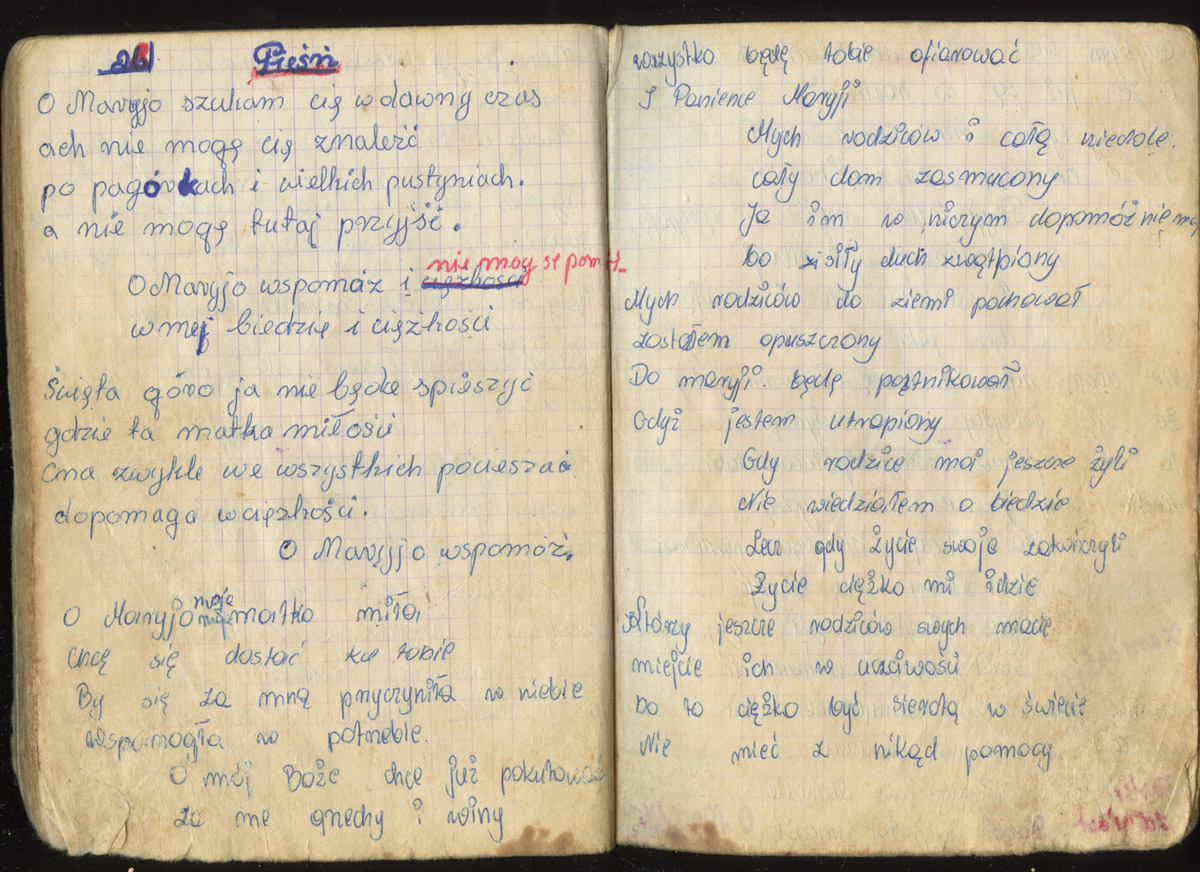 26 Pieśń
O Maryjo szukam cię w dawny czas
ach nie mogę cię znaleść
po pagórkach i wielkich pustyniach.
a nie mogę tutaj przyjść.
nie mog se pom
O Maryjo wspomóż i ciężkości
w mej biedzie i ciężkości
Święta góro ja nie będe spioszyć
gdzie ta matka miłości
Ona zwykle we wszystkich pocieszać
dopomaga w ciężkości.
O Maryjo wspomóż.
moja
O Maryjo matko miła,
Chcę się dostać ku tobie
By się za mną przyczyniła w niebie
wspomogła w potrzebie.
O mój Boże chcę już pokutować
Za me grzechy i winy
wszystko będę tobie ofiarować
I Panience Maryji
Mych rodziców i całą niedolę.
cały dom zasmucony
Ja im w niczym dopomóż nie mog
bo zisiły duch zwątpiony
Mych rodziców do ziemi pochował
zostałem opuszczony
Do maryji będę pątnikował
Gdyż jestem utrapiony
Gdy rodzice moi jeszcze żyli
Nie wiedziałem o biedzie
Lecz gdy życie swoje zakończyli
Życie ciężko mi idzie
Którzy jeszcze rodziców swych macie
miejcie ich w uczciwości
bo to ciężko być sierotą w świecie
Nie mieć z nikąd pomocy.